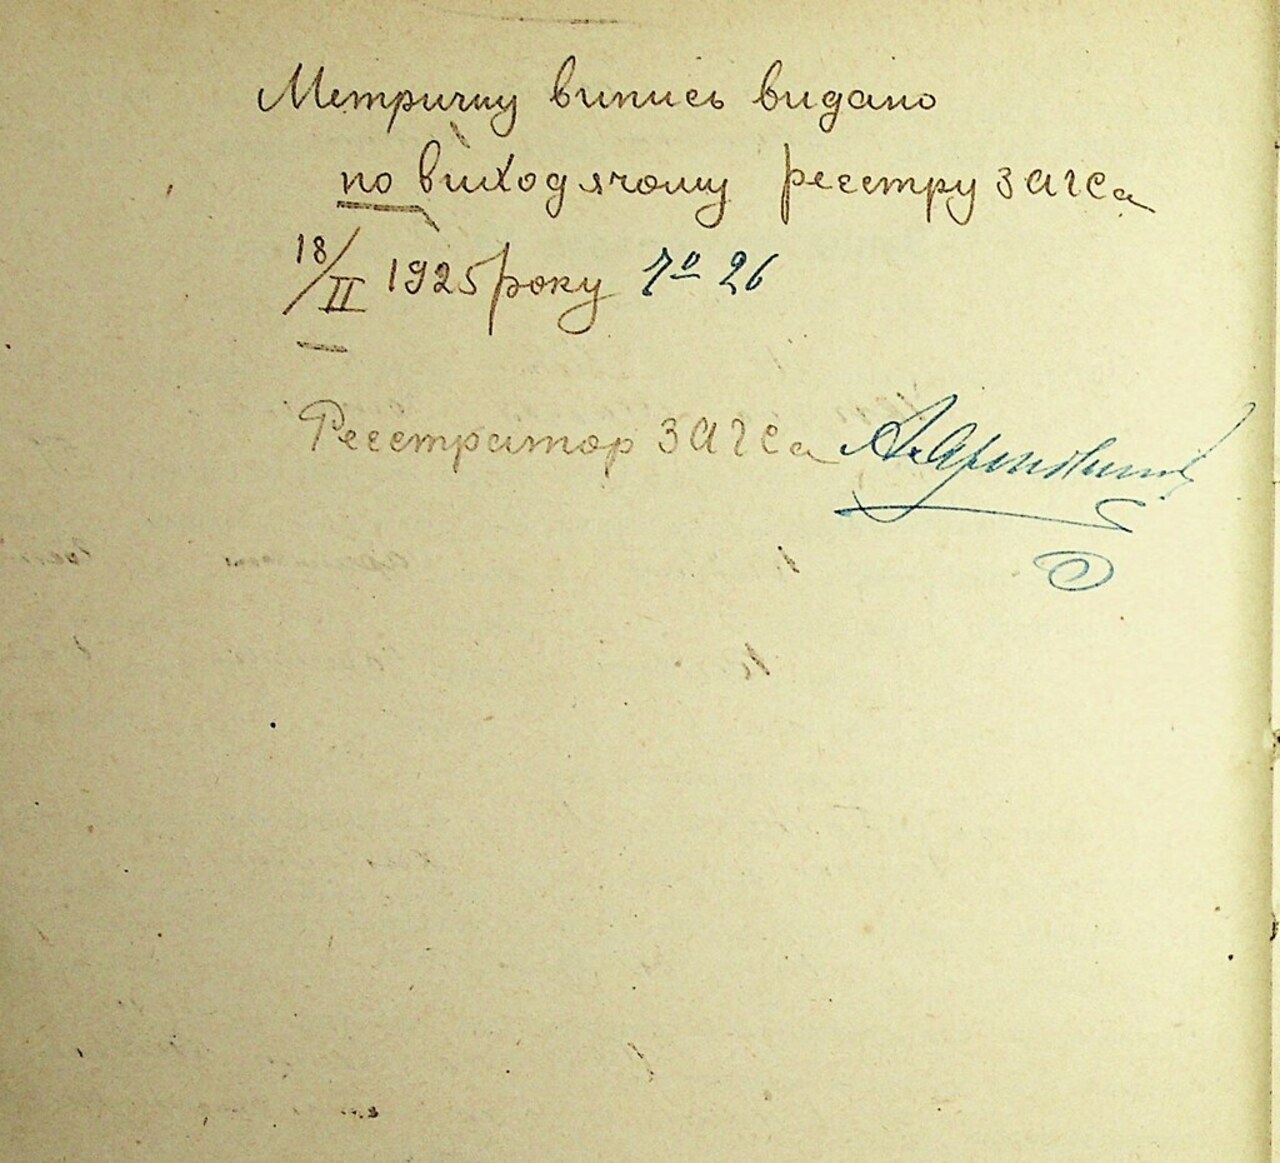 Метричну випись видано
по виходячому реєстру ЗАГСа
18/II 1925 року № 26
Реєстратор ЗАГСа